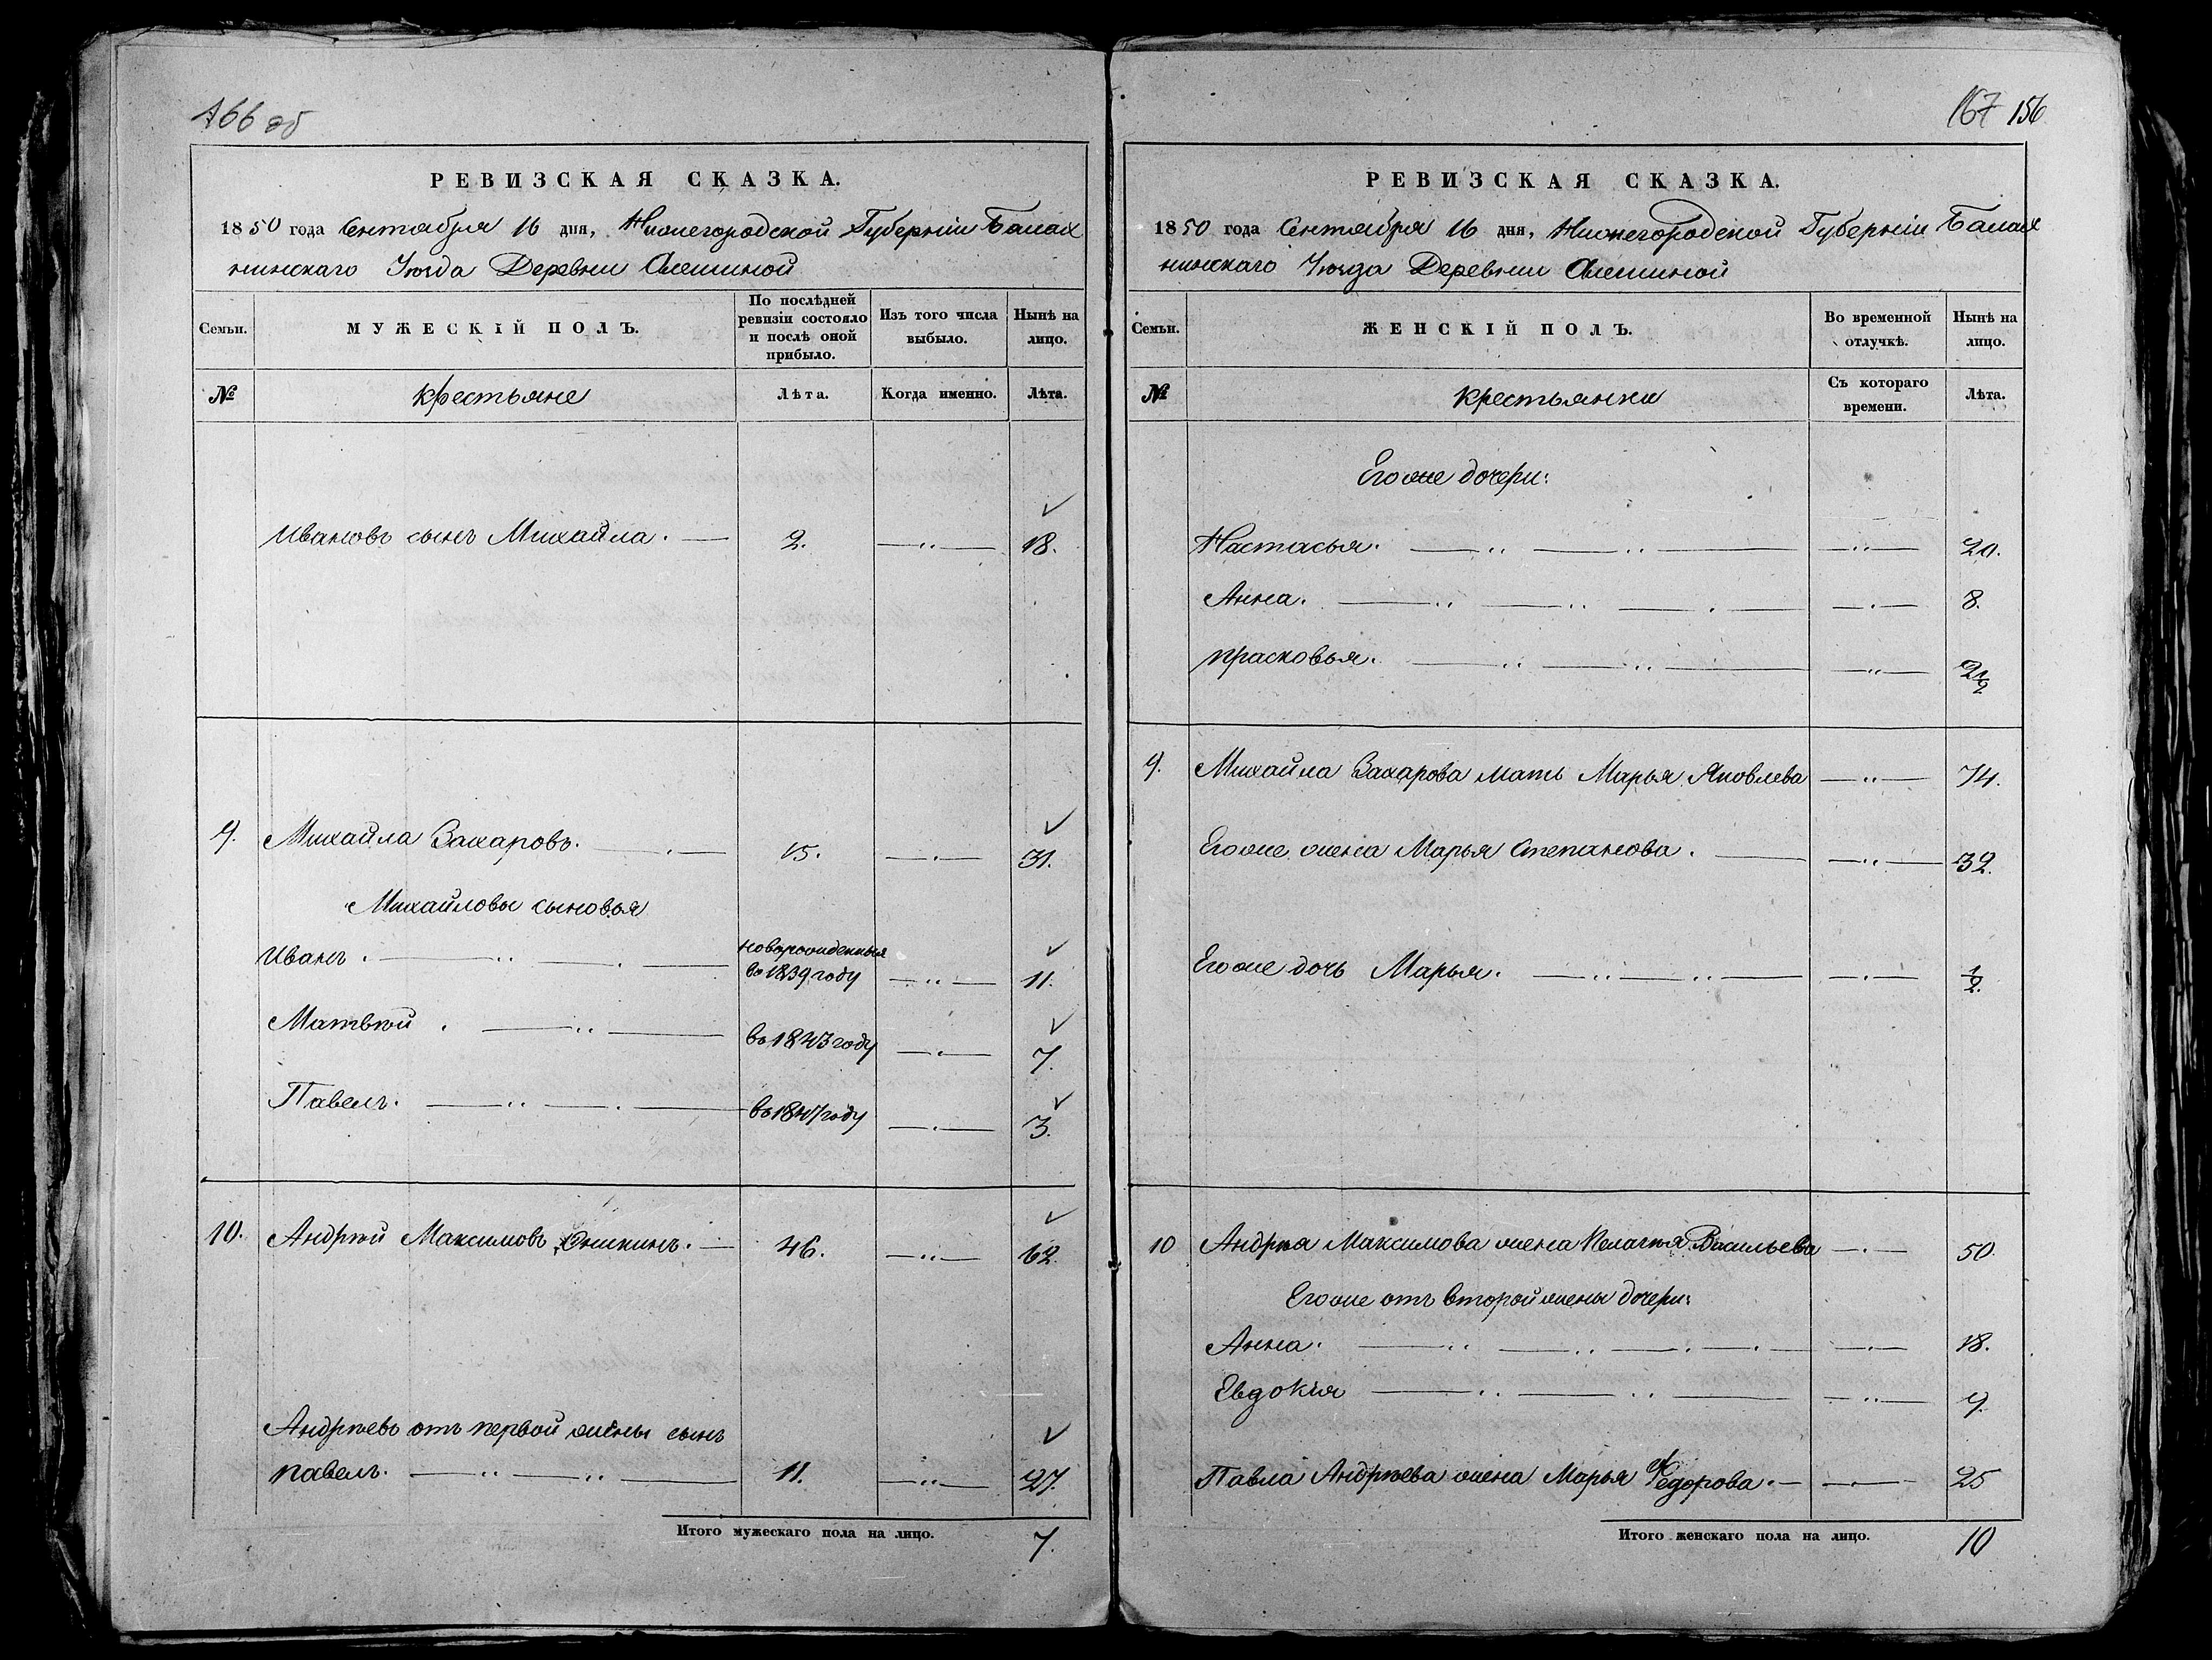 166 об
РЕВИЗСКАЯ СКАЗКА.
1850 года Сентября 16 дня, Нижегородской Губернiи Балах
нинскаго Уѣзда Деревни Алешиной
Семьи. МУЖЕСКIЙ ПОЛЪ. По послѣдней ревизiи состояло и послѣ оной прибыло. Изъ того числа выбыло. Нынѣ на лицо.
№ Крестьяне Лѣта. Когда именно. Лѣта.
Ивановъ сынъ Михайла. 2. 18.
9. Михайла Захаровъ. 15. 31.
Михайловы сыновья
Иванъ. новорожденныя во 1839 году 11.
Матвѣй. въ 1843 году 7.
Павелъ. въ 1847 году 3.
10. Андрѣй Максимовъ 46. 62.
Андрѣевъ отъ первой жены сынъ
Павелъ. 11. 27.
Итого мужескаго пола на лицо. 7.
167 156
РЕВИЗСКАЯ СКАЗКА.
1850 года Сентября 16 дня, Нижегородской Губернiи Балах
нинскаго Уѣзда Деревни Алешиной
Семьи. ЖЕНСКIЙ ПОЛЪ. Во временной отлучкѣ. Нынѣ на лицо.
№ Крестьянки Съ котораго времени. Лѣта.
Егоже дочери:
Настасья. 20.
Анна. 8.
Прасковья. 2½
9. Михайла Захарова мать Марья Яковлева 74.
Егоже жена Марья Степанова. 32.
Егоже дочь Марья. ½.
10 Андрѣя Максимова жена Пелагѣя Васильева 50.
Егоже отъ второй жены дочери:
Анна. 18.
Евдокiя 9.
Павла Андрѣева жена Марья Федорова. 25
Итого женскаго пола на лицо. 10